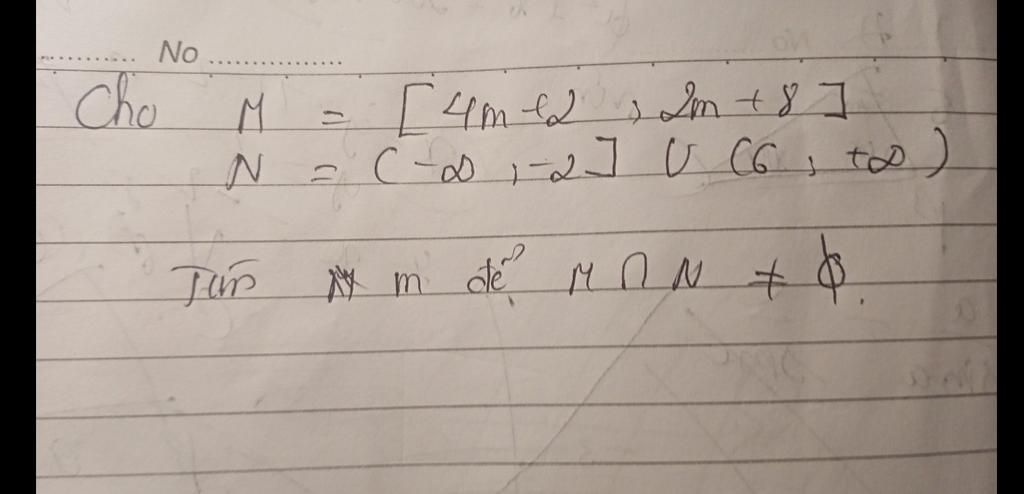 No
Cho M = [4m+2 ; 2m+8]
N = (-∞ ; -2] ∪ (6 ; +∞)
Tìm m để M ∩ N ≠ ϕ.